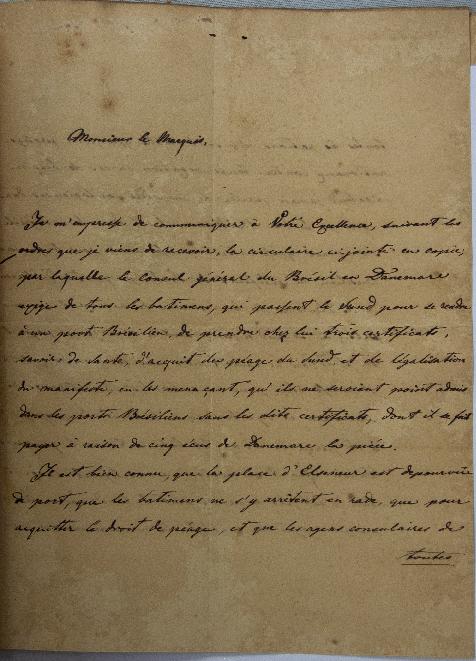 Monsieur le Marquis,
Je m'empresse de communiquer à Votre Excellence, suivant les
ordres que je viens de recevoir, la circulaire ci-jointe en copie
par laquelle le Consul général du Brésil en Danemarc
exige de tous les batimens, qui passent le Sund pour se rendre
à un port Brésilien, de prendre chez lui trois certificats,
savoir: de santé, d'acquit des péages du Sund et de légalisation
du manifeste, en les menaçant, qu'ils ne seroient point admis
dans les ports Brésiliens sans les dits certificats, dont il se fait
payer à raison de cinq écus de Danemarc la pièce.
Il est bien connu, que la place d'Elseneur est dépourvûe
de port, que les batimens ne s'y arrêtent en rade, que pour
acquitter le droit de péage, et que les agens consulaires de
toutes